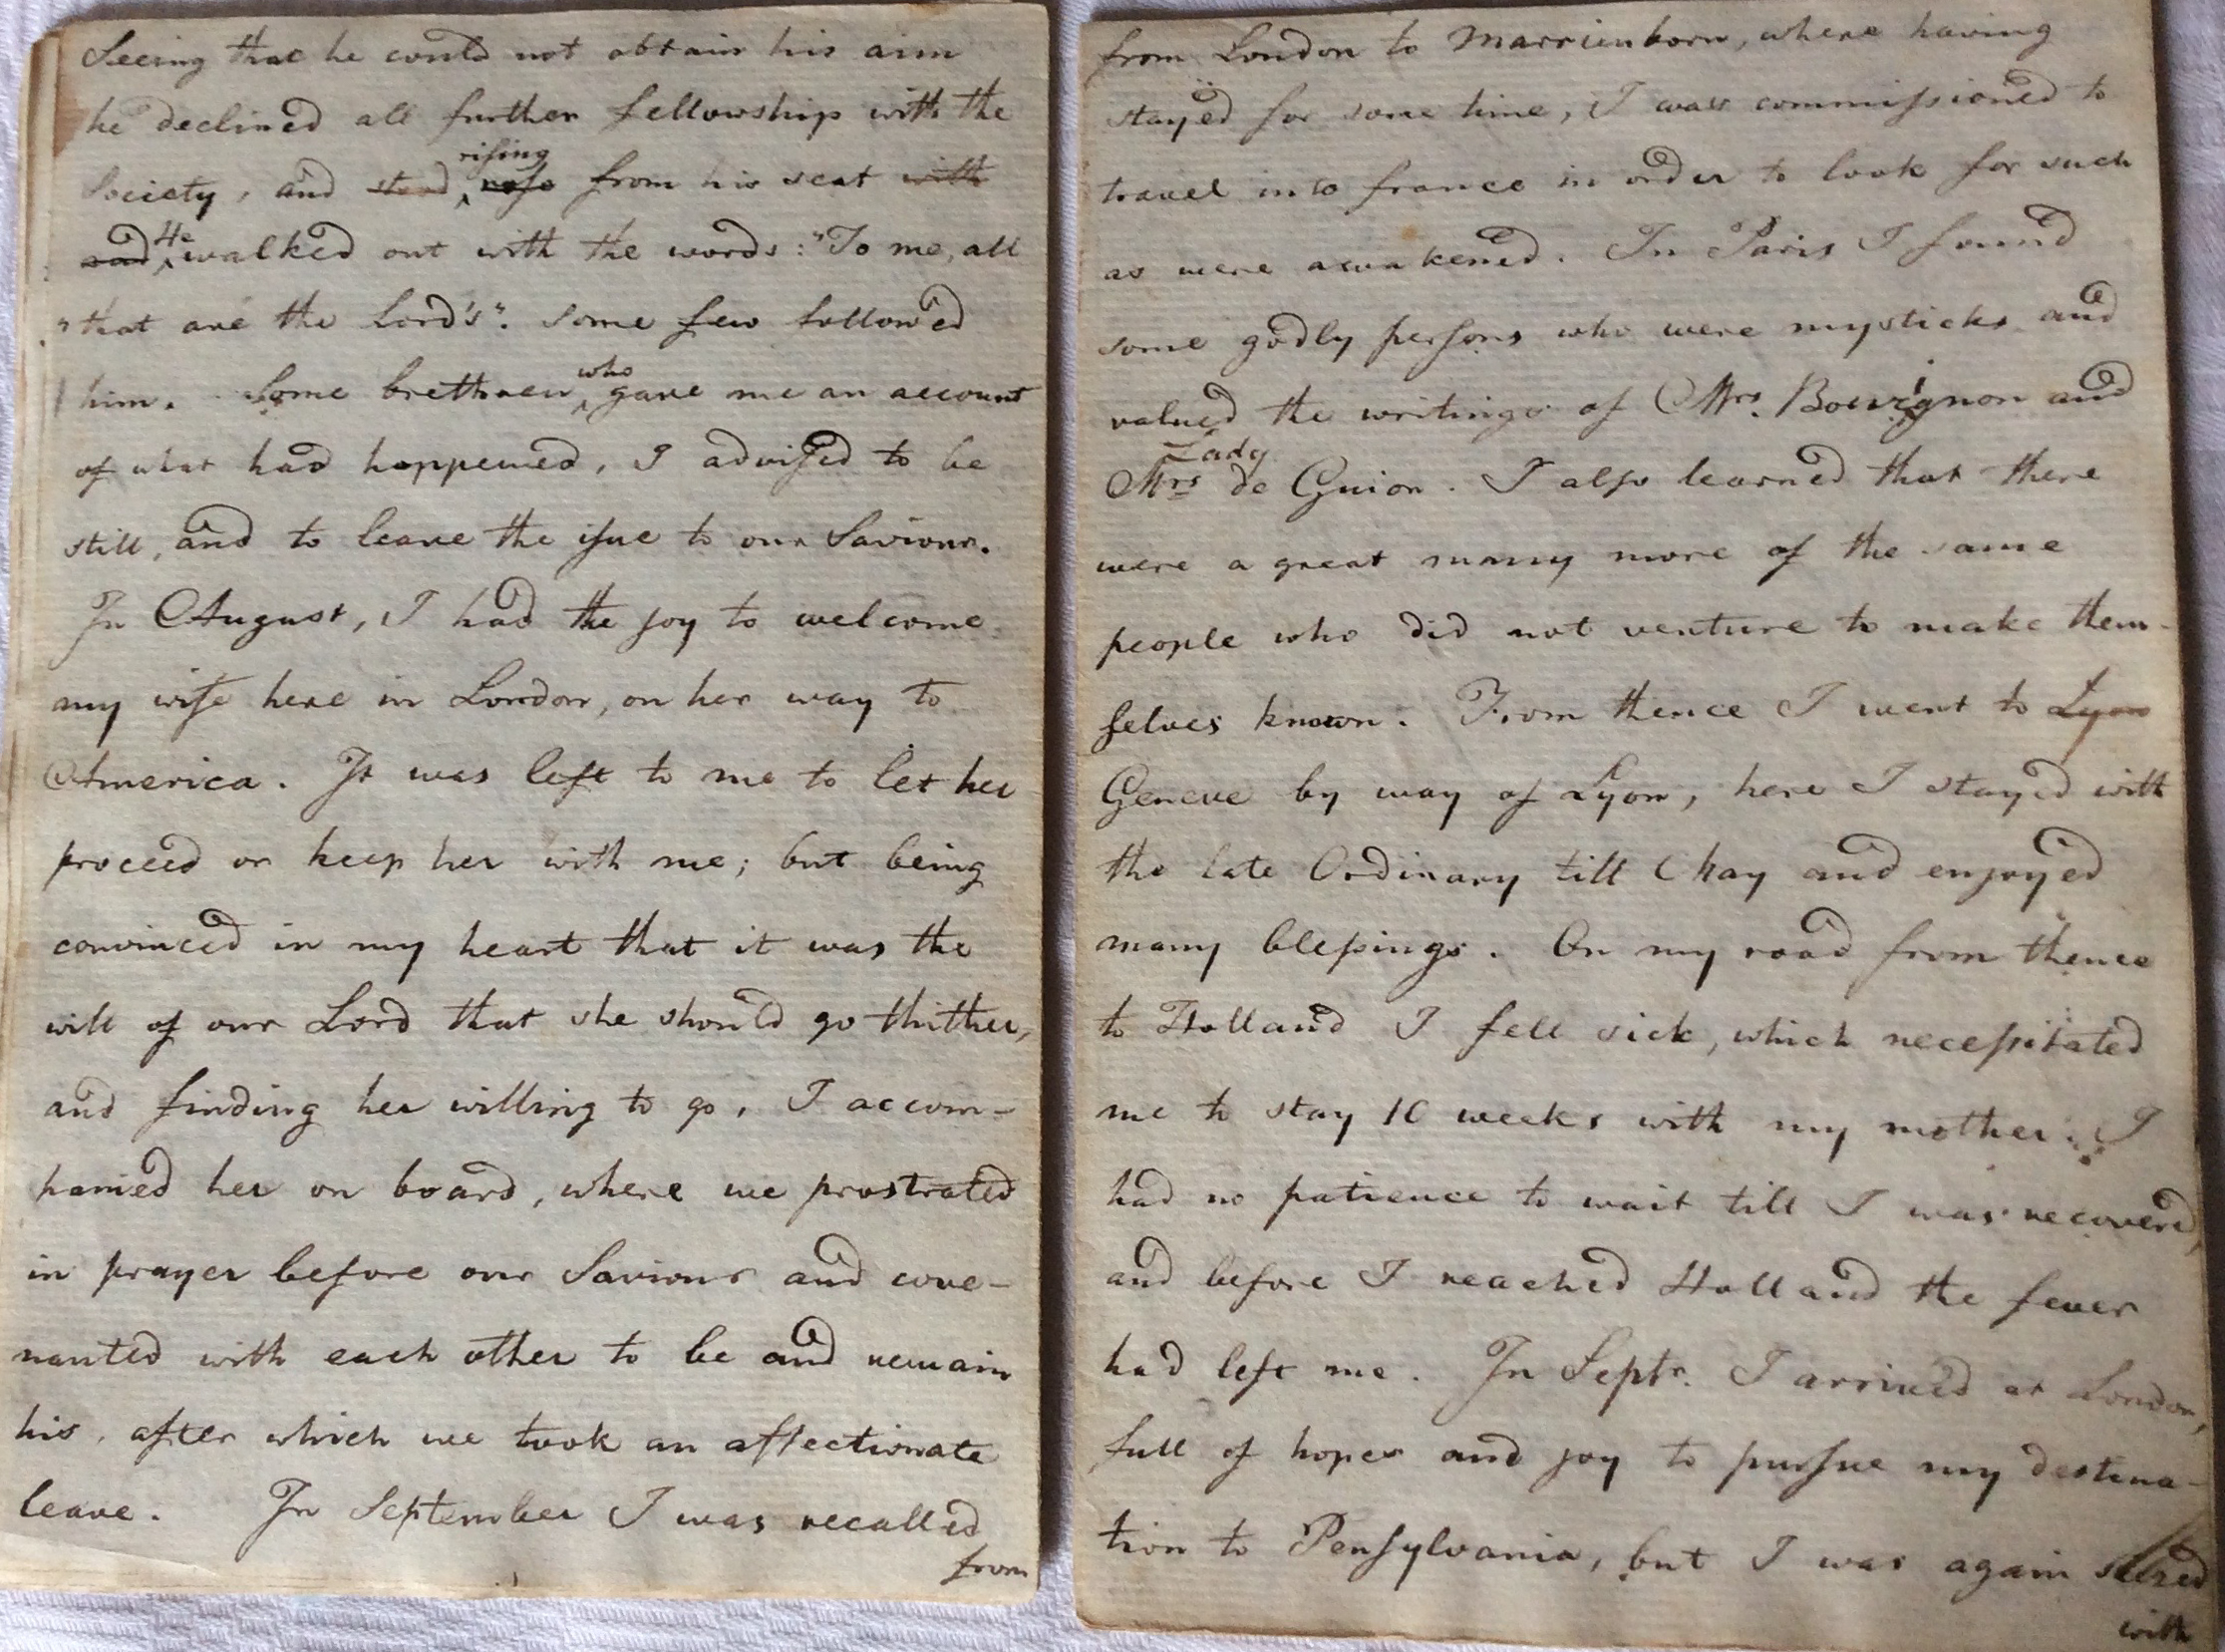 Seeing that he could not obtain his aim
he declined all further fellowship with the
Society, and stood rising rose from his seat with
and He walked out with the words: "To me, all
"that are the Lord's". Some few followed
him. Some brethren who gave me an account
of what had happened, I advised to be
still, and to leave the issue to our Saviour.
In August, I had the joy to welcome
my wife here in London, on her way to
America. It was left to me to let her
proceed or keep her with me; but being
convinced in my heart that it was the
will of our Lord that she should go thither,
and finding her willing to go, I accom-
panied her on board, where we prostrated
in prayer before our Saviour and cove-
nanted with each other to be and remain
his, after which we took an affectionate
leave. In September I was recalled
from
from London to Marrienborn, where having
stayed for some time, I was commissioned to
travel into france in order to look for such
as were awakened. In Paris I found
some godly persons who were mysticks and
valued the writings of Mrs. Bourignon and
Lady
Mrs de Guion. I also learned that there
were a great many more of the same
people who did not venture to make them-
selves known. From thence I went to Lyon
Geneve by way of Lyon, here I stayed with
the late Ordinary till May and enjoyed
many blessings. On my road from thence
to Holland I fell sick, which necessitated
me to stay 10 weeks with my mother. I
had no patience to wait till I was recovered,
and before I reached Holland the fever
had left me. In Septr. I arrived at London,
full of hopes and joy to pursue my destina-
tion to Pensylvania, but I was again seized
with